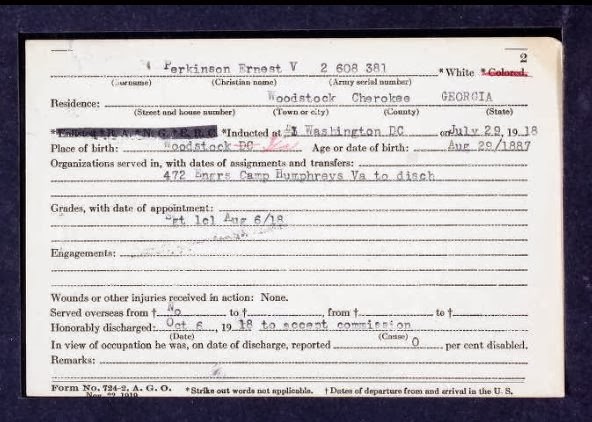 2
Perkinson Ernest V 2 608 381 * White * Colored.
(Surname) (Christian name) (Army serial number)
Residence: Woodstock Cherokee GEORGIA
(Street and house number) (Town or city) (County) (State)
* Enlisted * R. A. * N. G. * E. R. C. *Inducted at Washington DC on July 29, 19 18
Place of birth: Woodstock DC Age or date of birth: Aug 29/1887
Organizations served in, with dates of assignments and transfers:
472 Engrs Camp Humphreys Va to disch
Grades, with date of appointment:
Pvt 1cl Aug 6/18
Engagements:
Wounds or other injuries received in action: None.
Served overseas from † No to † from † to †
Honorably discharged: Oct 6, 19 18 to accept commission
(Date) (Cause)
In view of occupation he was, on date of discharge, reported 0 per cent disabled.
Remarks:
Form No. 724-2, A. G. O. * Strike out words not applicable. † Dates of departure from and arrival in the U. S.
Nov. 22, 1919